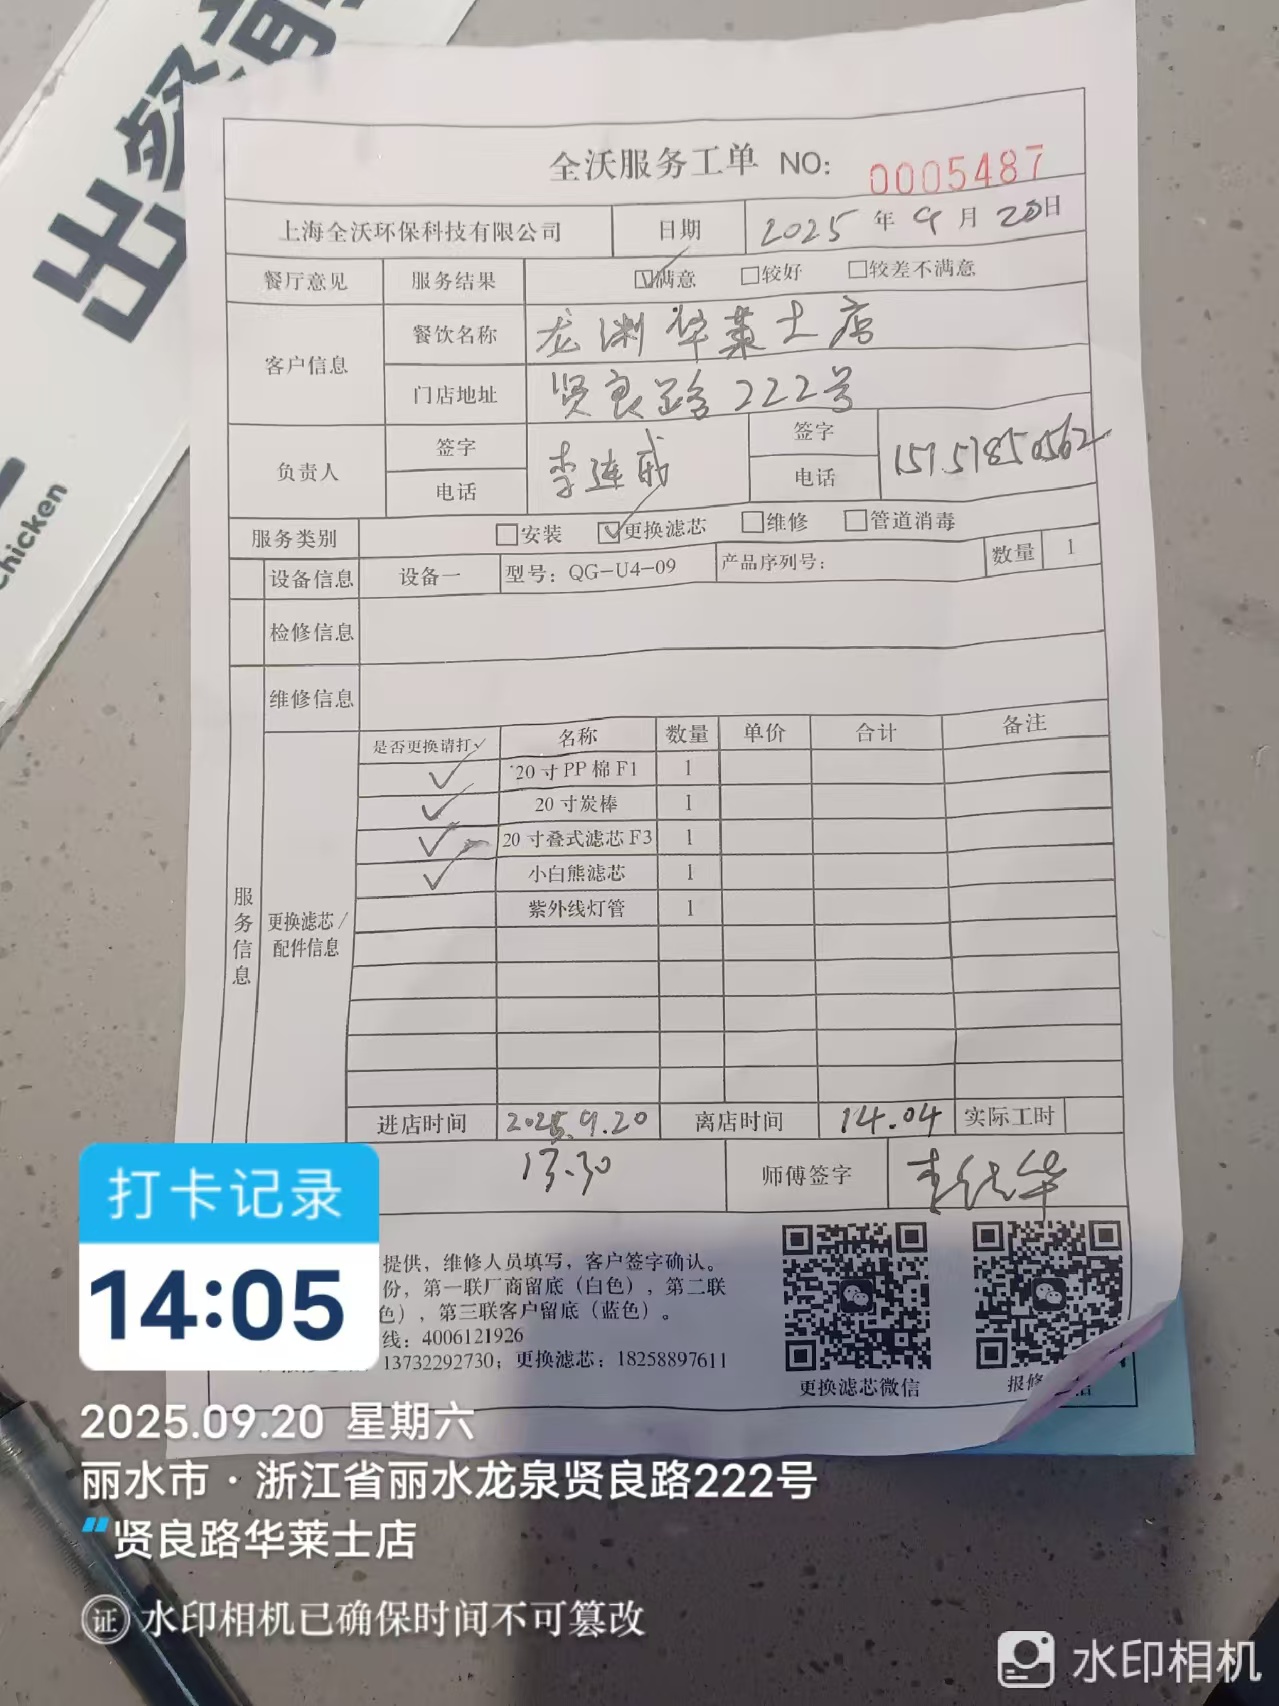 出餐
hicken
全沃服务工单 NO: 0005487
上海全沃环保科技有限公司 日期 2025年9月20日
餐厅意见 服务结果 ☑满意 □较好 □较差不满意
客户信息 餐饮名称 龙渊华莱士店
门店地址 贤良路222号
负责人 签字 电话 李连成 签字 电话 15157850562
服务类别 □安装 ☑更换滤芯 □维修 □管道消毒
设备信息 设备一 型号：QG-U4-09 产品序列号： 数量 1
检修信息
维修信息
服务信息
更换滤芯/配件信息
是否更换请打√ 名称 数量 单价 合计 备注
✓ 20寸PP棉F1 1
✓ 20寸炭棒 1
✓ 20寸叠式滤芯F3 1
✓ 小白熊滤芯 1
紫外线灯管 1
进店时间 2025.9.20 离店时间 14.04 实际工时
13.30 师傅签字
提供，维修人员填写，客户签字确认。
份，第一联厂商留底（白色），第二联
色），第三联客户留底（蓝色）。
线：4006121926
13732292730；更换滤芯：18258897611
更换滤芯微信 报修
打卡记录
14:05
2025.09.20 星期六
丽水市·浙江省丽水龙泉贤良路222号
贤良路华莱士店
证 水印相机已确保时间不可篡改
水印相机